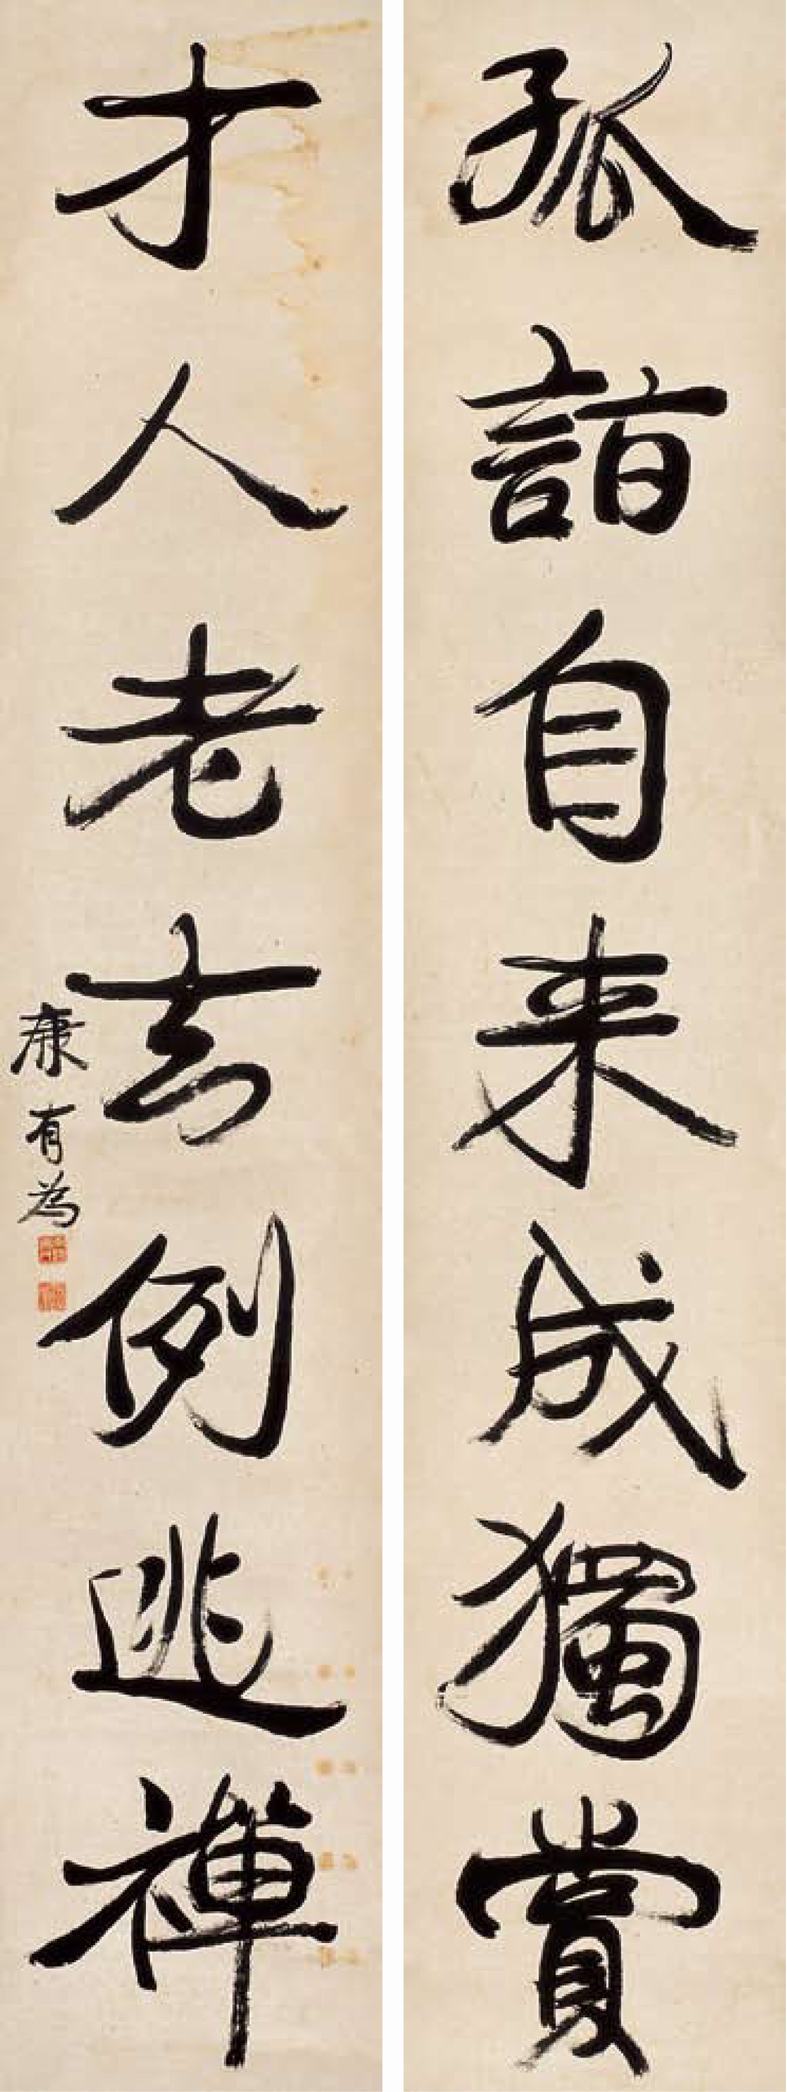 孤詣自来成獨賞
才人老去例逃禪
康有為